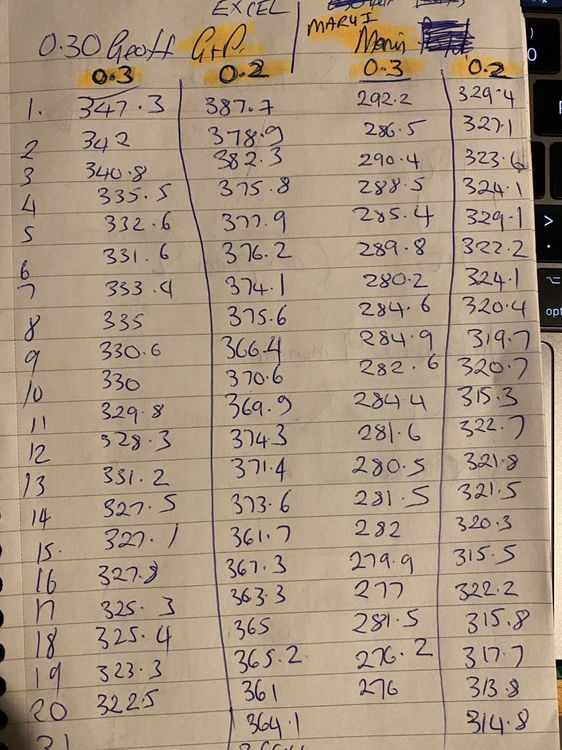 EXCEL
MARUI
0.30 Geoff G+P
0.3 0.2 0.3 0.2
1. 347.3 387.7 292.2 329.4
2 342 378.9 286.5 327.1
3 340.8 382.3 290.4 323.6
4 335.5 375.8 288.5 324.1
5 332.6 377.9 285.4 329.1
6 331.6 376.2 289.8 322.2
7 333.4 374.1 280.2 324.1
8 335 375.6 284.6 320.4
9 330.6 366.4 284.9 319.7
10 330 370.6 282.6 320.7
11 329.8 369.9 284.4 315.3
12 328.3 374.3 281.6 322.7
13 331.2 371.4 280.5 321.8
14 327.5 373.6 281.5 321.5
15. 327.1 361.7 282 320.3
16 327.8 367.3 279.9 315.5
17 325.3 363.3 277 322.2
18 325.4 365 281.5 315.8
19 323.3 365.2 276.2 317.7
20 322.5 361 276 313.8
21 364.1 314.8